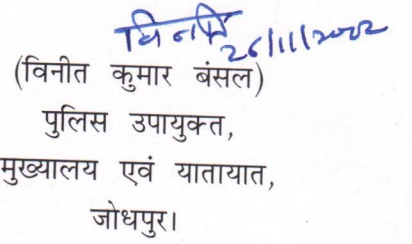 विनीत
26/11/2022
(विनीत कुमार बंसल)
पुलिस उपायुक्त,
मुख्यालय एवं यातायात,
जोधपुर।